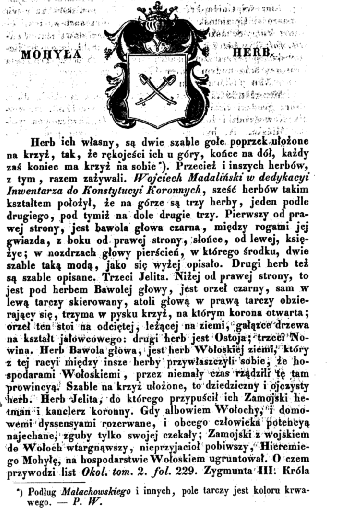 MOHYŁA HERB.
Herb ich własny, są dwie szable gołe poprzek ułożone
na krzyż, tak, że rękojeści ich u góry, końce na dół, każdy
zaś koniec ma krzyż na sobie *). Przecież i inszych herbów,
z tym, razem zażywali. Wojciech Madaliński w dedykacyi
Inwentarza do Konstytucyi Koronnych, sześć herbów takim
kształtem położył, że na górze są trzy herby, jeden podle
drugiego, pod tymiż na dole drugie trzy. Pierwszy od pra-
wej strony, jest bawola głowa czarna, między rogami jej
gwiazda, z boku od prawej strony, słońce, od lewej, księ-
życ; w nozdrzach głowy pierścień, w którego środku, dwie
szable taką modą, jako się wyżej opisało. Drugi herb też
są szable opisane. Trzeci Jelita. Niżej od prawej strony, to
jest pod herbem Bawolej głowy, jest orzeł czarny, sam w
lewą tarczy skierowany, atoli głową w prawą tarczy obzie-
rający się, trzyma w pysku krzyż, na którym korona otwarta;
orzeł ten stoi na odciętej, leżącej na ziemi, gałązce drzewa
na kształt jałowcowego: drugi herb jest Ostoja; trzeci No-
wina. Herb Bawola głowa, jest herb Wołoskiej ziemi, który
z tej racyi między insze herby przywłaszczyli sobie, że ho-
spodarami Wołoskiemi, przez niemały czas rządzili tę tam
prowincyą. Szable na krzyż ułożone, to dziedziczny i ojczysty
herb. Herb Jelita, do którego przypuścił ich Zamojski he-
tman i kanclerz koronny. Gdy albowiem Wołochy, i domo-
wemi dyssensyami rozerwane, i obcego człowieka potencyą
najechane, zguby tylko swojej czekały; Zamojski z wojskiem
do Wołoch wtargnąwszy, nieprzyjacioł pobiwszy, Hieremie-
go Mohyłę, na hospodarstwie Wołoskiem ugruntował. O czem
przywodzi list Okol. tom. 2. fol. 229. Zygmunta III: Króla
*) Podług Małachowskiego i innych, pole tarczy jest koloru krwa-
wego. — P. W.